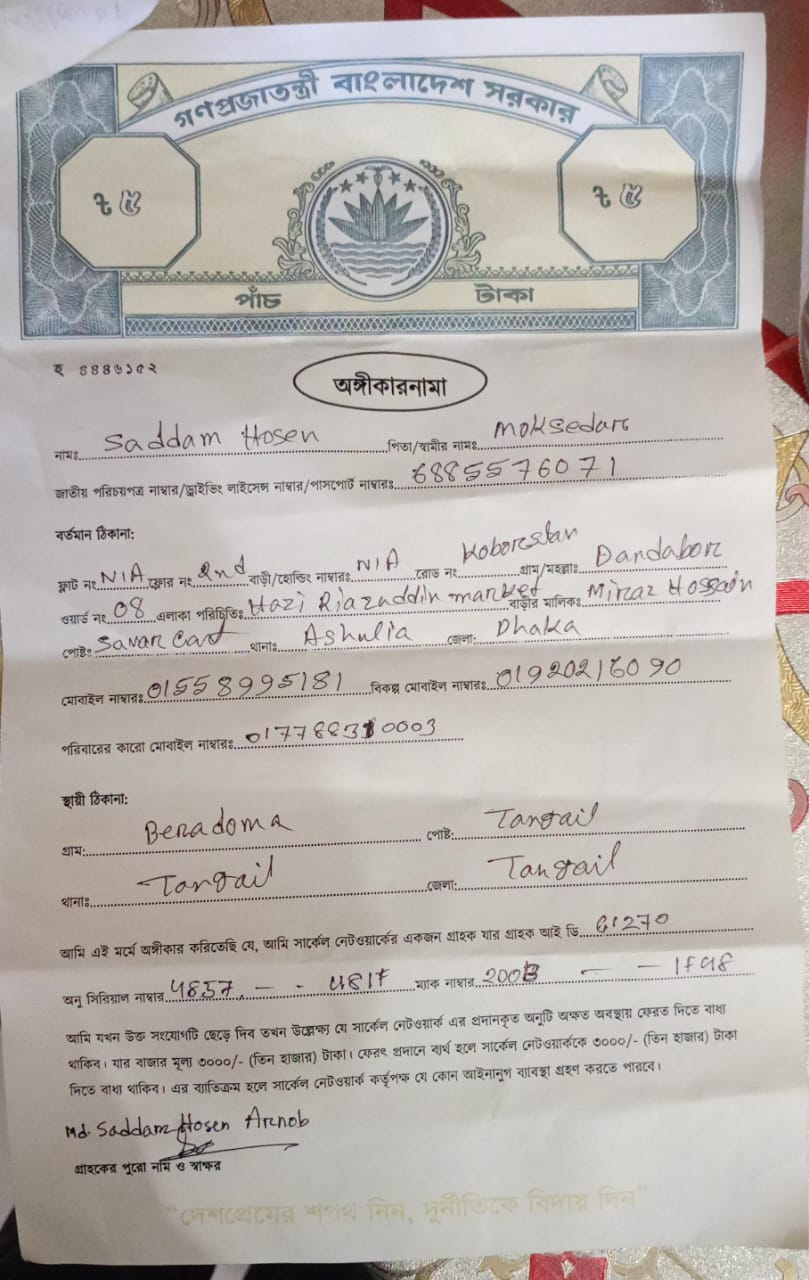 গণপ্রজাতন্ত্রী বাংলাদেশ সরকার
৳ ৫ ৳ ৫
পাঁচ টাকা
হ ৪৪৪৬১৫২
অঙ্গীকারনামা
নামঃ Saddam Hosen পিতা/স্বামীর নামঃ
জাতীয় পরিচয়পত্র নাম্বার/ড্রাইভিং লাইসেন্স নাম্বার/পাসপোর্ট নাম্বারঃ 6885576071
বর্তমান ঠিকানা:
ফ্লাট নং N/A ফ্লোর নং 2nd বাড়ী/হোল্ডিং নাম্বারঃ N/A রোড নং Koborestan গ্রাম/মহল্লাঃ Dandabor
ওয়ার্ড নং 08 এলাকা পরিচিতিঃ Hazi Riazuddin market বাড়ীর মালিকঃ Miraz Hossain
পোষ্টঃ Savar থানাঃ Ashulia জেলা: Dhaka
মোবাইল নাম্বারঃ 01558995181 বিকল্প মোবাইল নাম্বারঃ 01920216090
পরিবারের কারো মোবাইল নাম্বারঃ
স্থায়ী ঠিকানা:
গ্রাম: Beradoma পোষ্ট: Tangail
থানাঃ Tangail জেলা: Tangail
আমি এই মর্মে অঙ্গীকার করিতেছি যে, আমি সার্কেল নেটওয়ার্কের একজন গ্রাহক যার গ্রাহক আই ডি 61270
অনু সিরিয়াল নাম্বার ম্যাক নাম্বার
আমি যখন উক্ত সংযোগটি ছেড়ে দিব তখন উল্লেক্ষ্য যে সার্কেল নেটওয়ার্ক এর প্রদানকৃত অনুটি অক্ষত অবস্থায় ফেরত দিতে বাধ্য
থাকিব। যার বাজার মূল্য ৩০০০/- (তিন হাজার) টাকা। ফেরৎ প্রদানে ব্যর্থ হলে সার্কেল নেটওয়ার্ককে ৩০০০/- (তিন হাজার) টাকা
দিতে বাধ্য থাকিব। এর ব্যতিক্রম হলে সার্কেল নেটওয়ার্ক কর্তৃপক্ষ যে কোন আইনানুগ ব্যবস্থা গ্রহণ করতে পারবে।
Md. Saddam Hosen Arnob
গ্রাহকের পুরো নাম ও স্বাক্ষর
"দেশপ্রেমের শপথ নিন, দুর্নীতিকে বিদায় দিন"